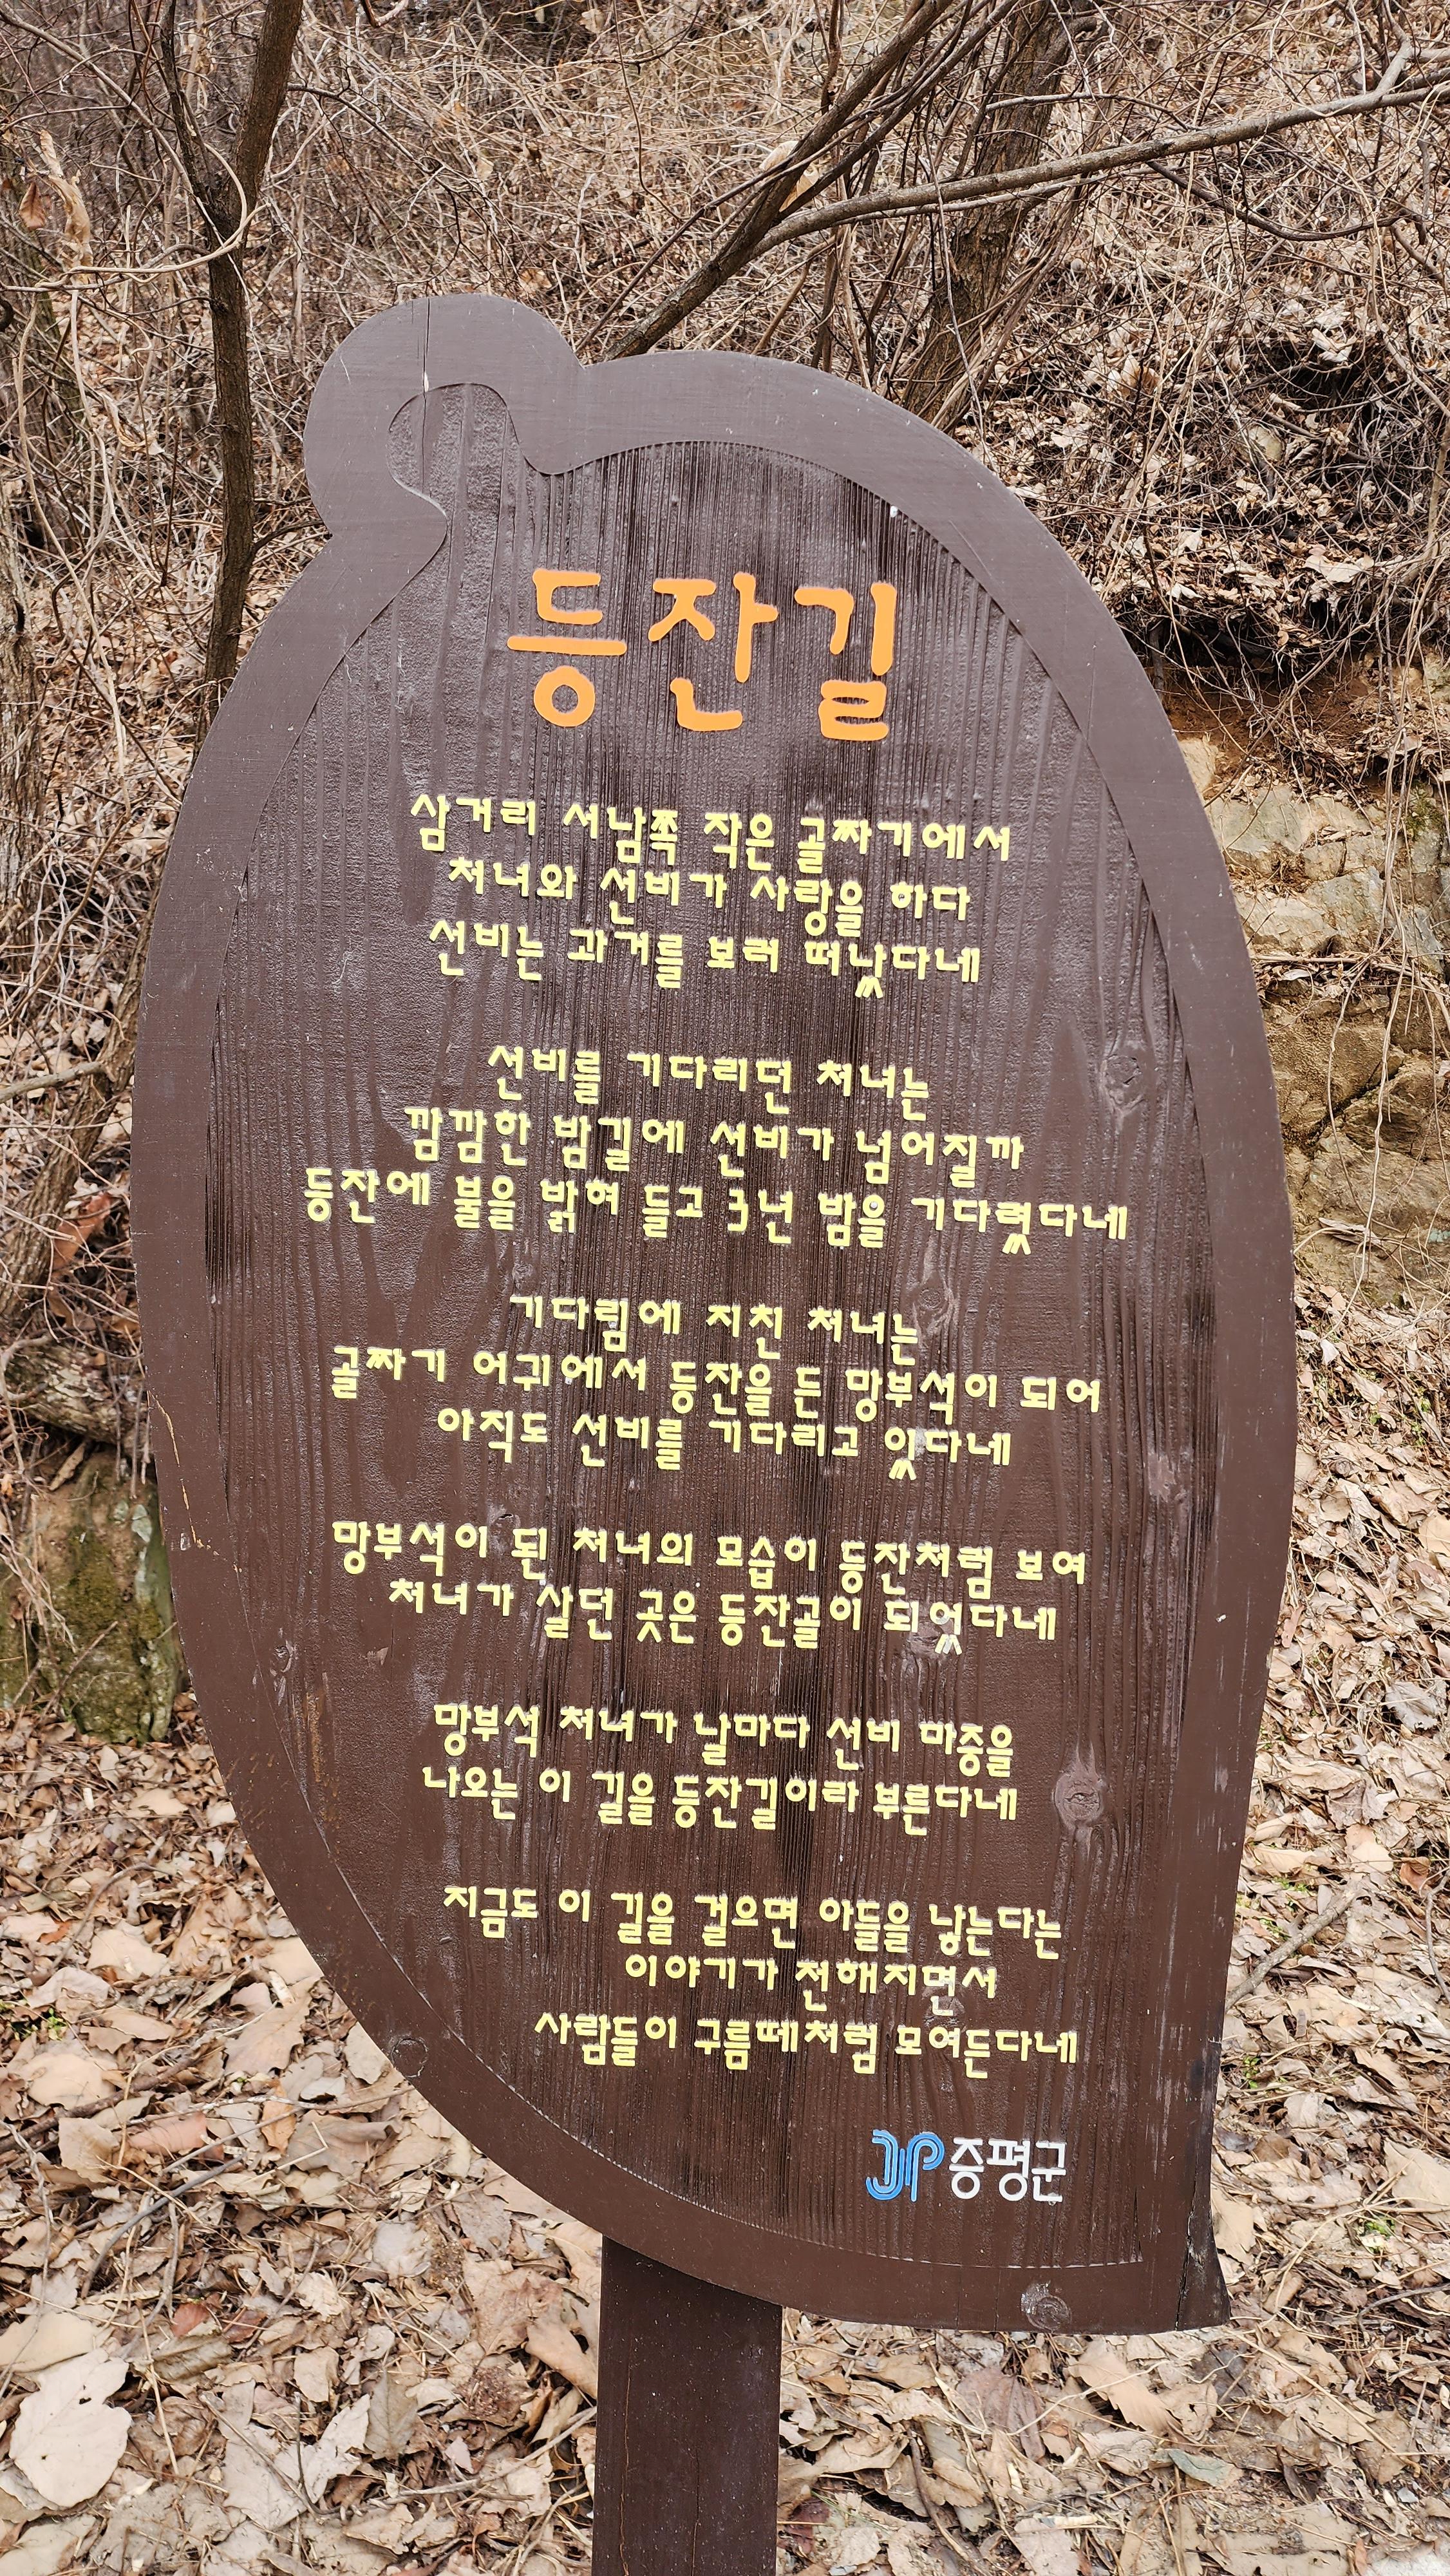 등잔길
삼거리 서남쪽 작은 골짜기에서
처녀와 선비가 사랑을 하다
선비는 과거를 보러 떠났다네
선비를 기다리던 처녀는
깜깜한 밤길에 선비가 넘어질까
등잔에 불을 밝혀 들고 3년 밤을 기다렸다네
기다림에 지친 처녀는
골짜기 어귀에서 등잔을 든 망부석이 되어
아직도 선비를 기다리고 있다네
망부석이 된 처녀의 모습이 등잔처럼 보여
처녀가 살던 곳은 등잔골이 되었다네
망부석 처녀가 날마다 선비 마중을
나오는 이 길을 등잔길이라 부른다네
지금도 이 길을 걸으면 아들을 낳는다는
이야기가 전해지면서
사람들이 구름떼처럼 모여든다네
JP 증평군